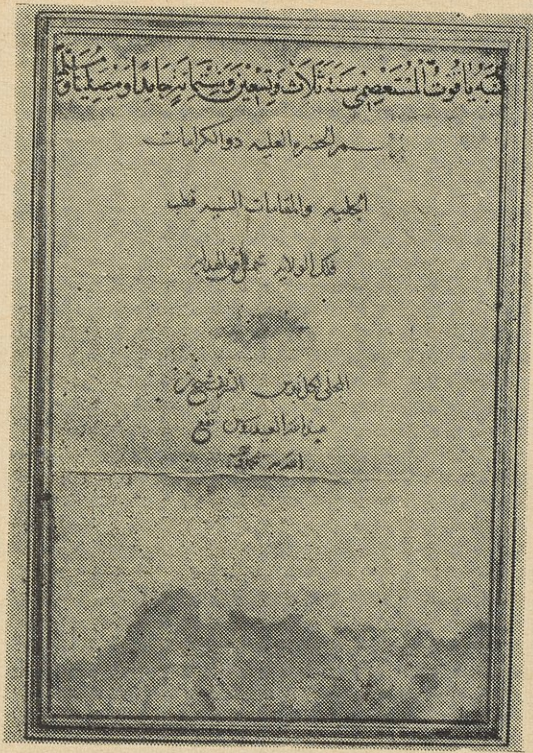 كتبه ياقوت المستعصمي سنة ثلاث وتسعين وستمائة حامدا ومصليا
برسم الحضره العليه ذو الكرامات
الجليه والمقامات السنيه قطب
فلك الولايه شمس افق الهدايه
المحلى بكل الشريف شيخ بن
عبدالله العيدروس نفع
الله به